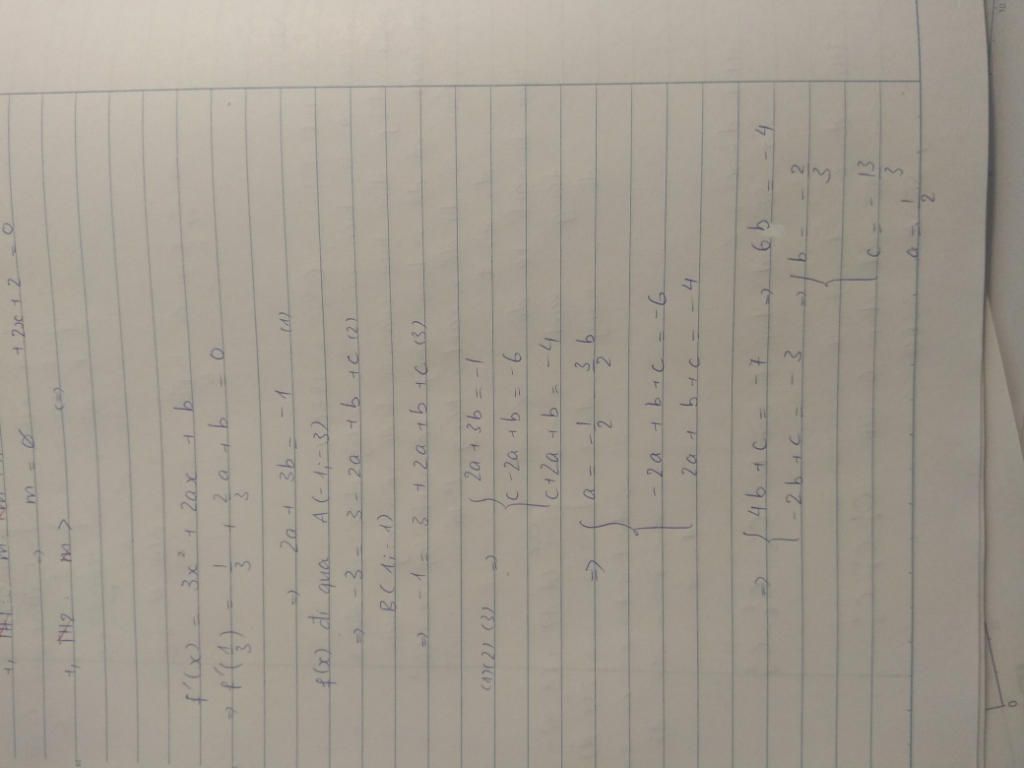 +2x + 2 = 0
⇒ m = 0
+, TH2: m > (=)
f'(x) = 3x² + 2ax + b
⇒ f'(1/3) = 1/3 + 2/3 a + b = 0
⇒ 2a + 3b = -1 (1)
f(x) đi qua A(-1;-3)
⇒ -3 = 3 - 2a + b + c (2)
B(1;-1)
⇒ -1 = 3 + 2a + b + c (3)
(1)(2)(3) ⇒ { 2a + 3b = -1
c - 2a + b = -6
c + 2a + b = -4
⇒ { a = -1/2 3/2 b
-2a + b + c = -6
2a + b + c = -4
⇒ { 4b + c = -7 ⇒ 6b = -4
-2b + c = -3 ⇒ { b = -2/3
c = -13/3
a = 1/2